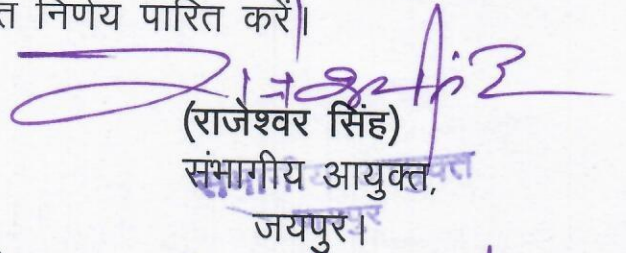 त निर्णय पारित करें।
(राजेश्वर सिंह)
संभागीय आयुक्त,
जयपुर।